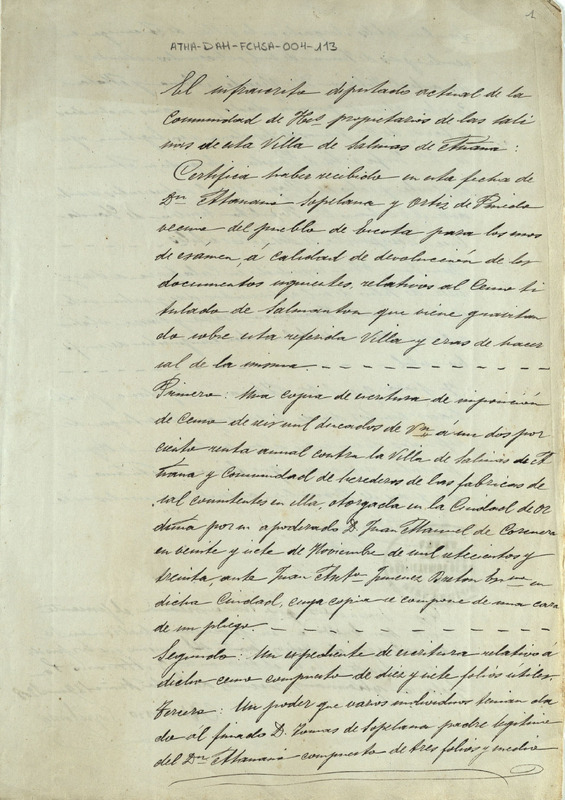 1
ATHA-DAH-FCHSA-004-113
El infrascrito diputado actual de la
Comunidad de Hos propietarios de las sali
nas de esta Villa de Salinas de Añana:
Certifica haber recibido en esta fecha de
Dn Atanasio Sopelana y Ortiz de Pinedo
vecino del pueblo de Escota para los usos
de exámen, á calidad de devolución de los
documentos siguientes, relativos al Censo ti
tulado de Salmanton que viene gravitan
do sobre esta referida Villa y eras de hacer
sal de la misma
Primero: Una copia de escritura de imposición
de Censo de seis mil ducados de Vn á un dos por
ciento renta anual contra la Villa de Salinas de A
ñana y Comunidad de herederos de las fabricas de
sal consistentes en ella, otorgada en la Ciudad de Or
duña por su apoderado D. Juan Manuel de
en veinte y siete de Noviembre de mil setecientos y
treinta ante Juan Anto Jimenez Breton Essno en
dicha Ciudad, cuya copia se compone de una cara
de un pliego.
Segundo: Un espediente de escritura relativo á
dicho censo compuesto de diez y siete folios utiles.
Tercero: Un poder que varios individuos tenian da
do al finado D. Tomas de Sopelana padre legitimo
del Dn Atanasio compuesto de tres folios y medio